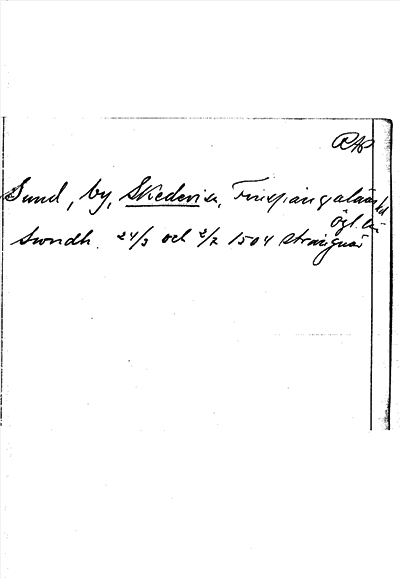 RAP
Sund, by, Skedevi sn, Finspångaläns hd
Ögl. län
Swndh. 24/3 och 2/7 1504 Strängnäs